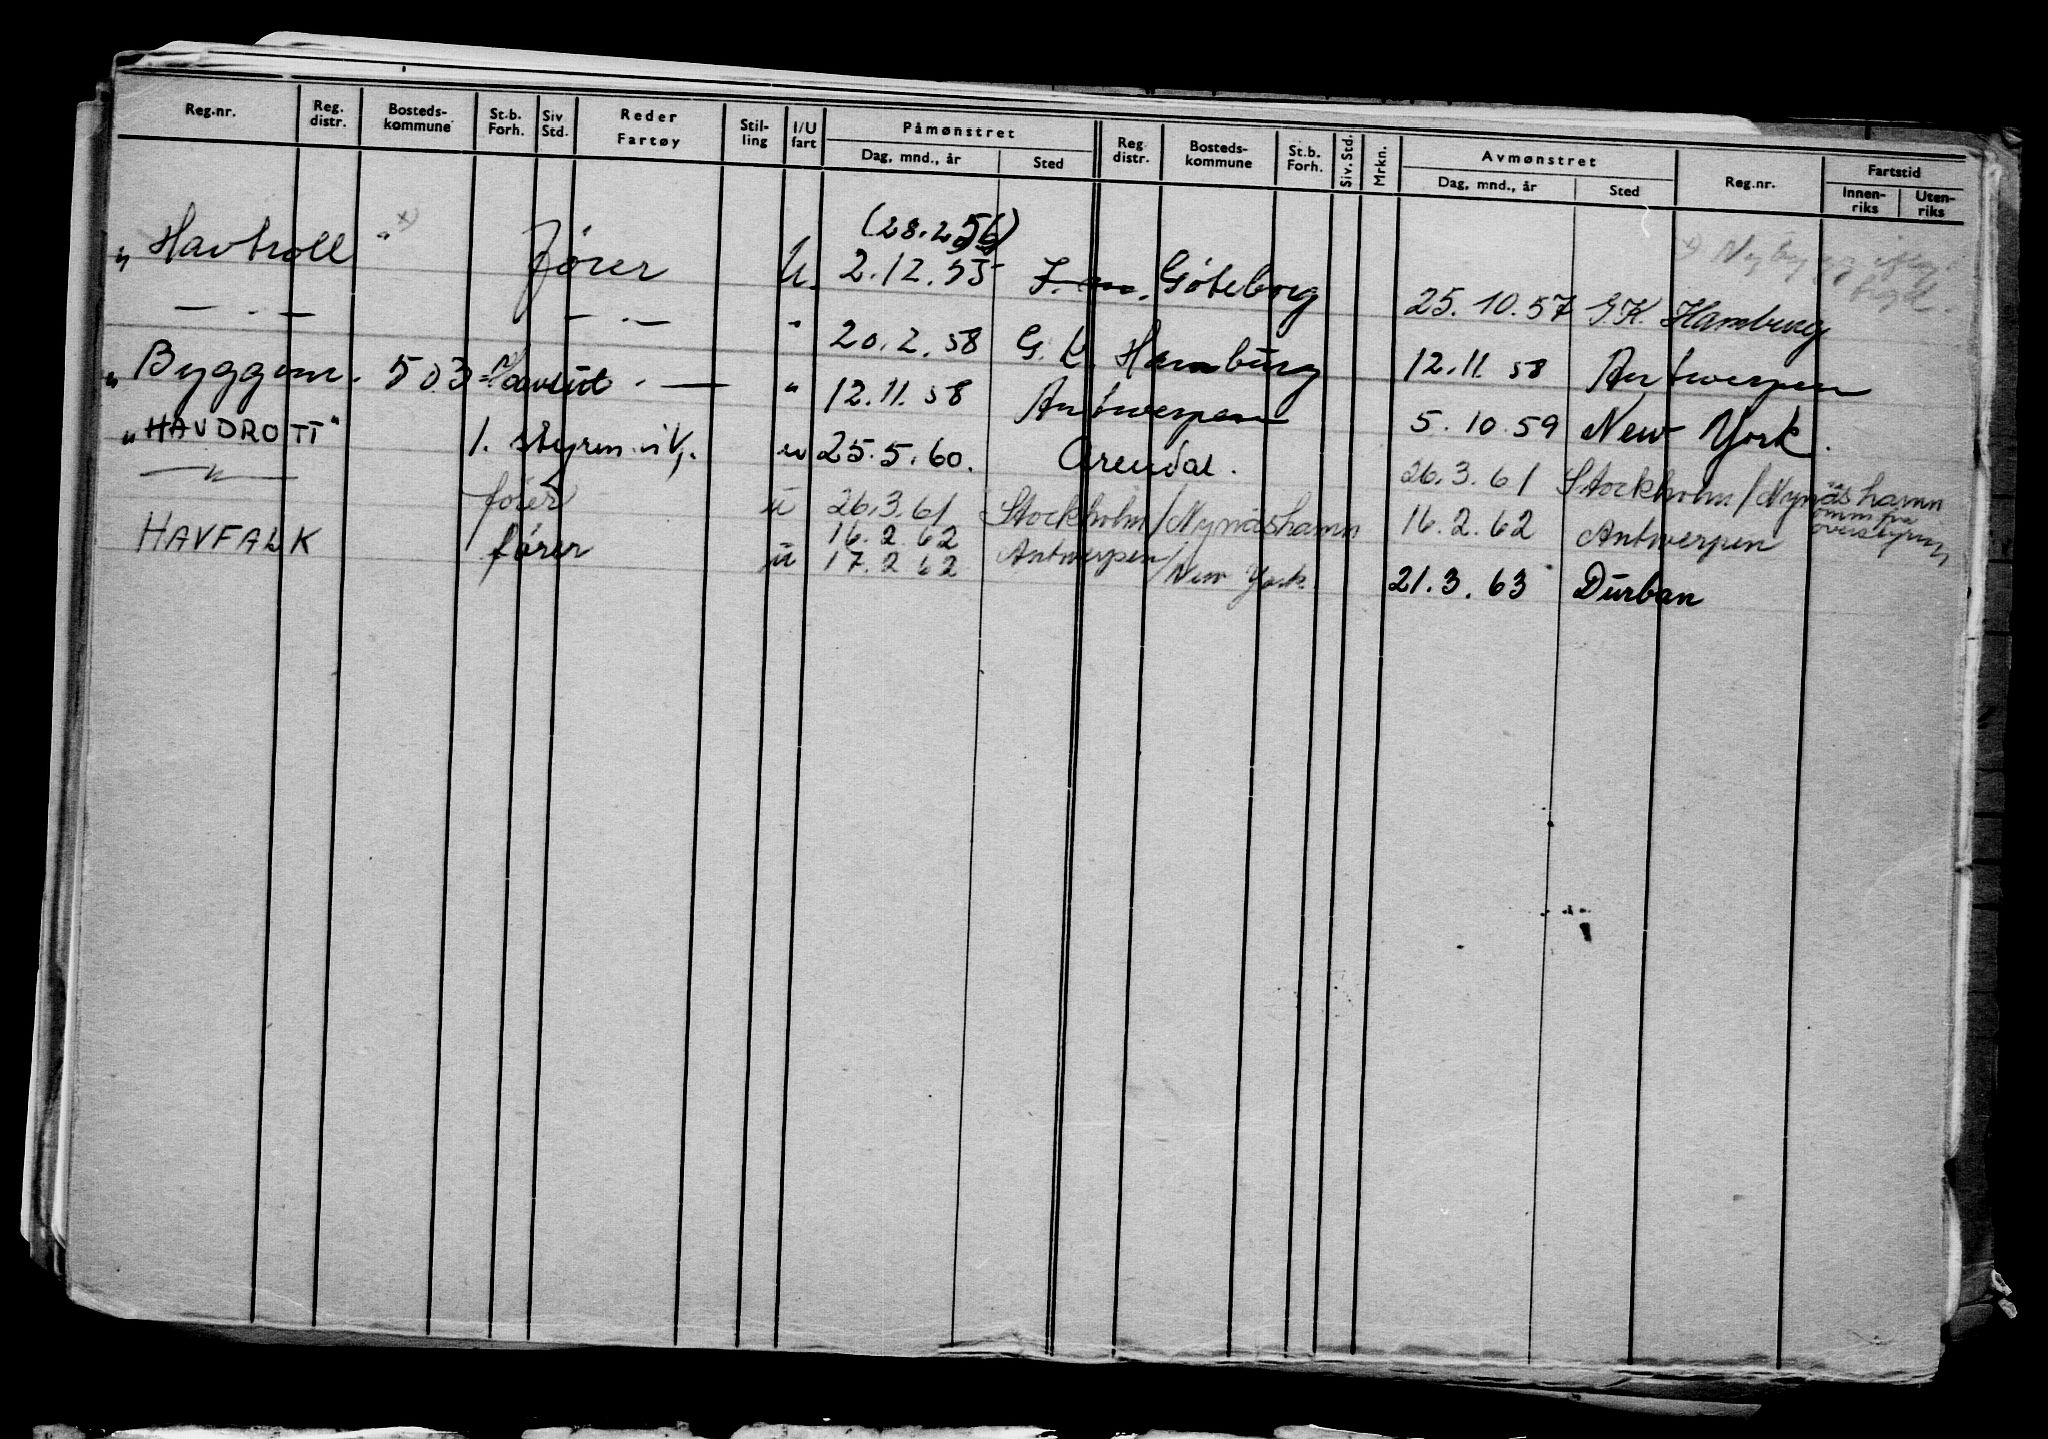 Reg.nr. Reg. distr. Bosteds- kommune St.b. Forh. Siv Std. Reder Fartøy Stil- ling I/U fart Påmønstret Dag, mnd., år Sted Reg distr. Bosteds- kommune St.b. Forh. Siv. Std. Mrkn. Avmønstret Dag, mnd., år Sted Reg.nr. Fartstid Innen- riks Uten- riks
(28.2.56)
"Havtroll" x) fører U. 2.12.55 Göteborg 25.10.57 G.K. Hamburg
— " — — " — " 20.2.58 G.K. Hamburg 12.11.58 Antwerpen
"Byggenr. 503 = — " — " 12.11.58 Antwerpen 5.10.59 New York.
"HAVDROTT" 1. styrm. u 25.5.60. Arendal. 26.3.61 Stockholm/Nynäshamn
— " — fører u 26.3.61 Stockholm/Nynäshamn 16.2.62 Antwerpen
HAVFALK fører u 16.2.62 17.2.62 Antwerpen/New York 21.3.63 Durban